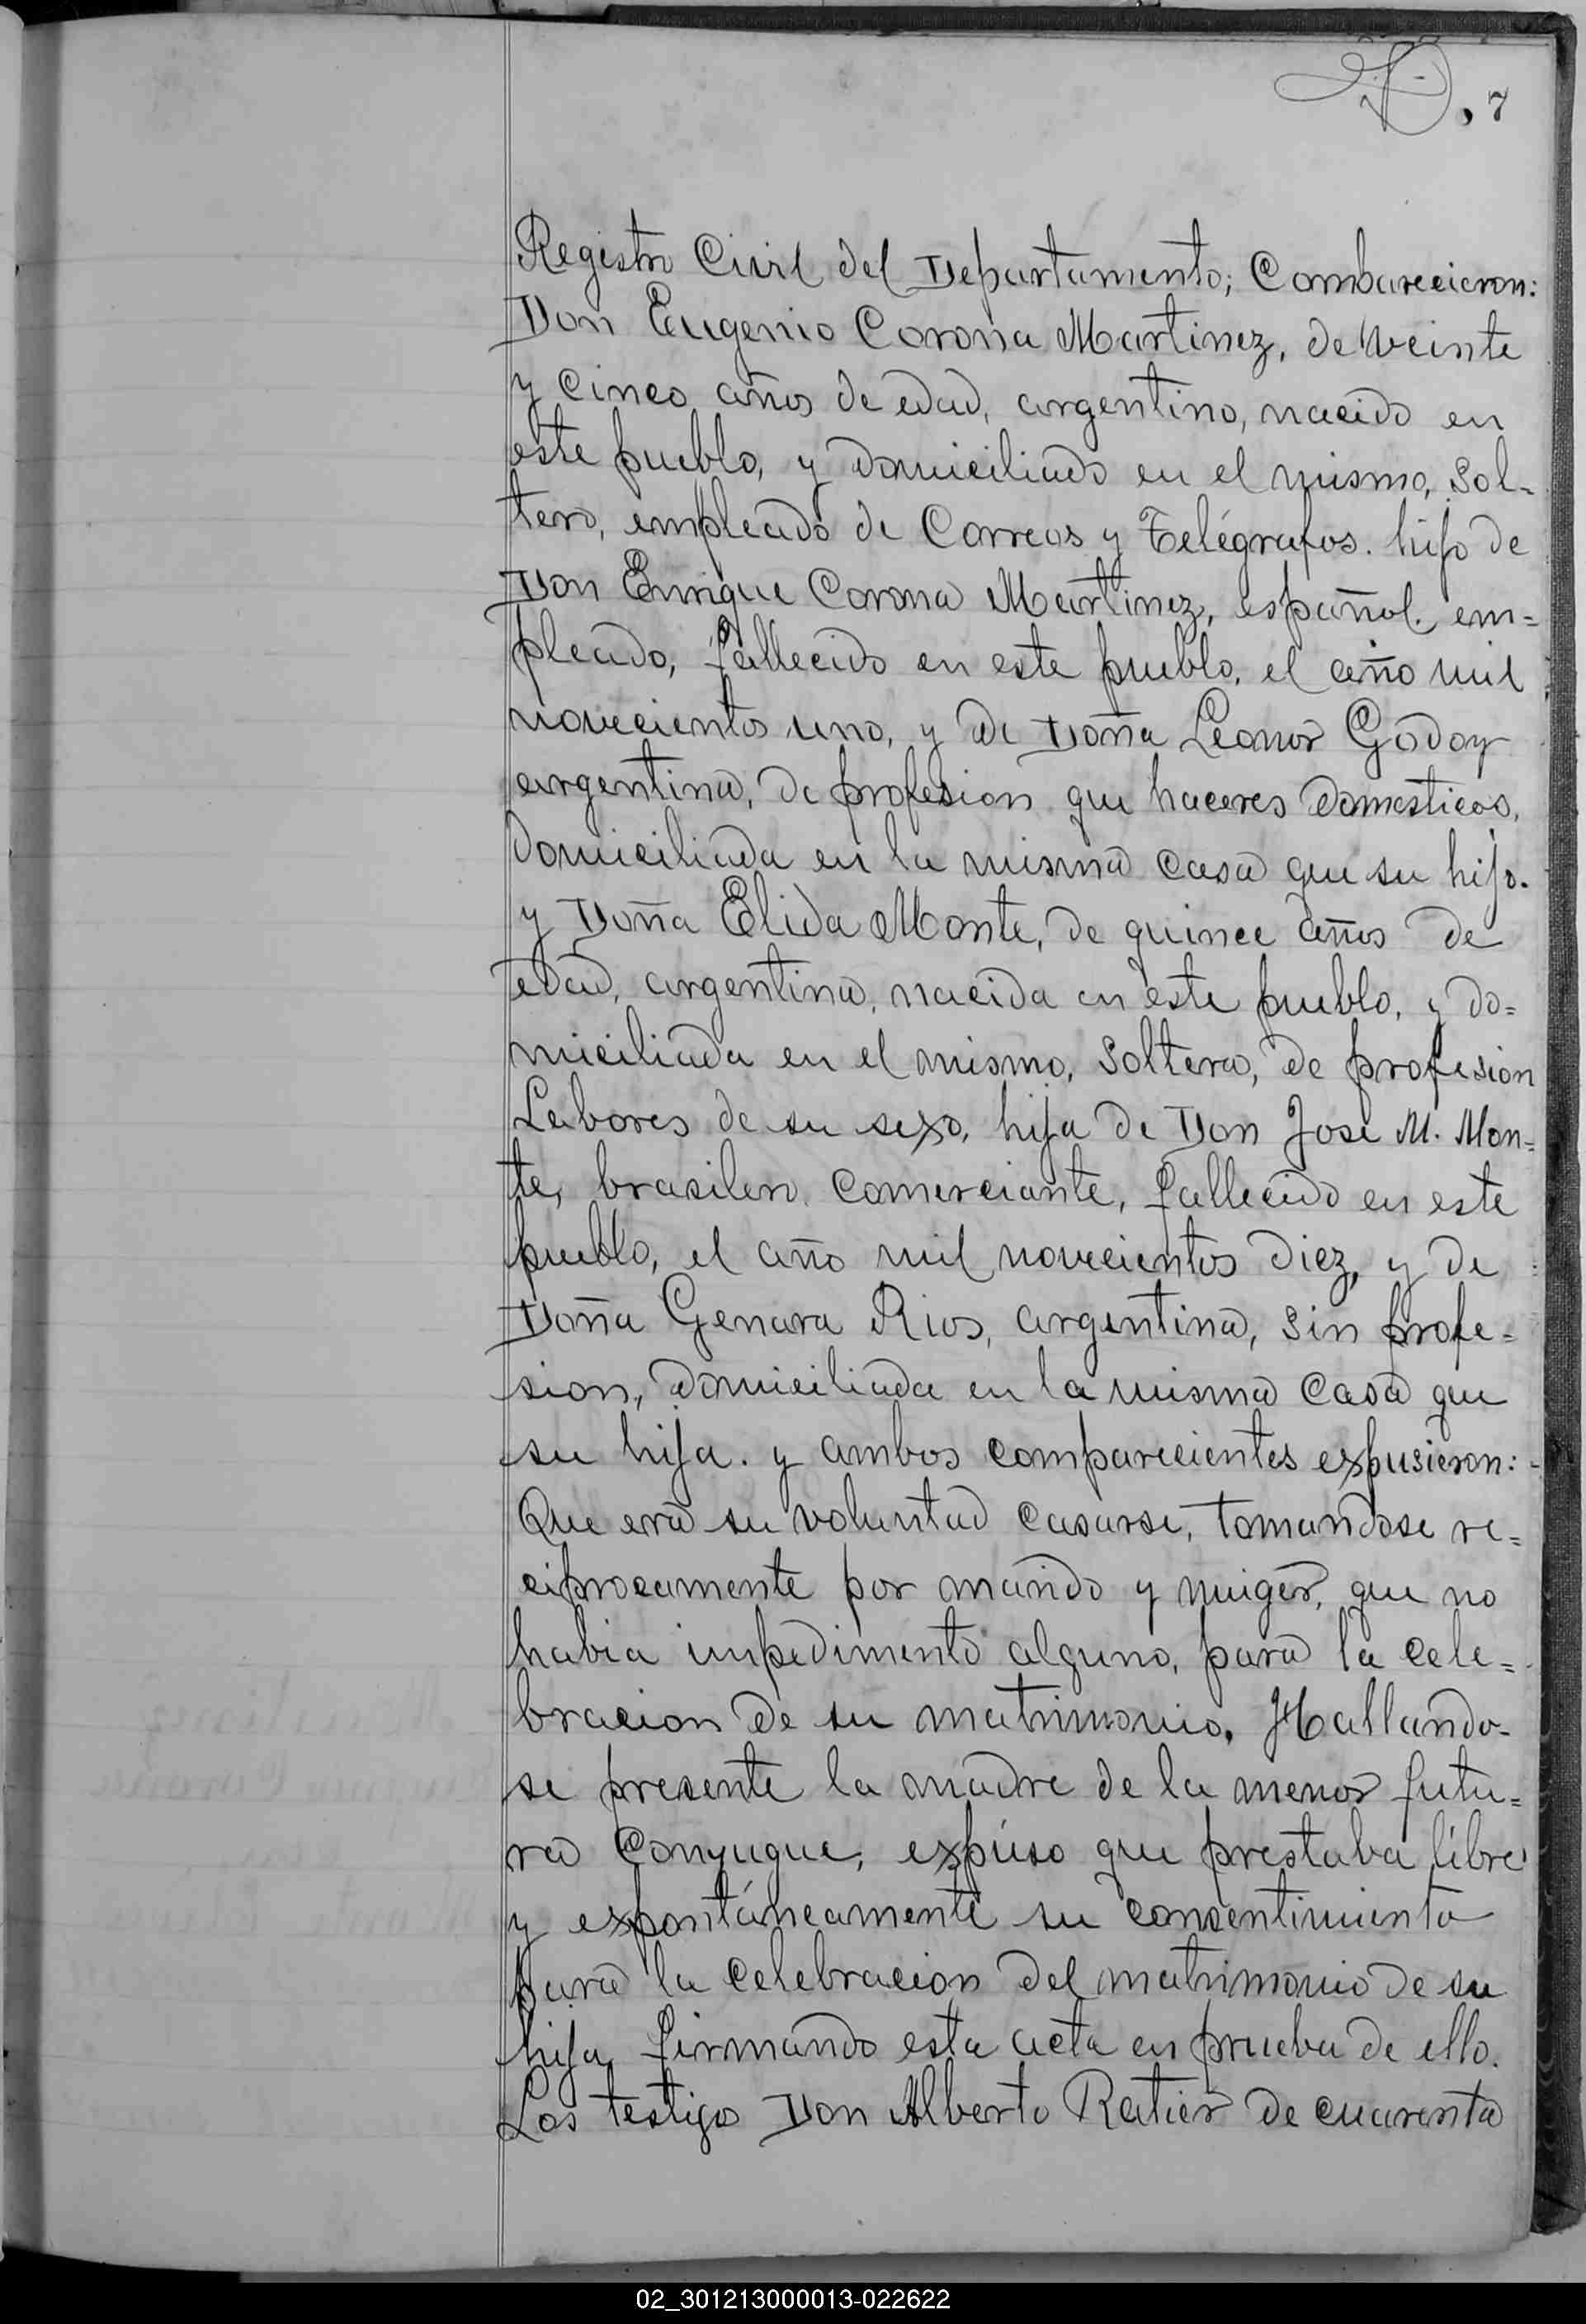 . 7
Registro Civil del Departamento; Comparecieron:
Don Eugenio Corona Martinez, de veinte
y cinco años de edad, argentino, nacido en
este pueblo, y domiciliado en el mismo, sol=
tero, empleado de Correos y Telégrafos. hijo de
Don Enrique Corona Martinez, español. em=
pleado, fallecido en este pueblo, el año mil
novecientos uno, y de Doña Leonor Godoy
argentina, de profesion que haceres domesticos,
domiciliada en la misma casa que su hijo.
y Doña Elida Monte, de quince años de
edad, argentina, nacida en este pueblo, y do=
miciliada en el mismo, soltera, de profesion
Labores de su sexo, hija de Don José M. Mon=
te, brasilero, comerciante, fallecido en este
pueblo, el año mil novecientos diez, y de
Doña Genara Rios, argentina, sin profe=
sion, domiciliada en la misma casa que
su hija. y ambos comparecientes expusieron:
Que era su voluntad casarse, tomandose re=
ciprocamente por marido y muger, que no
habia impedimento alguno, para la cele=
bracion de su matrimonio. Hallando-
se presente la madre de la menor futu=
ra conyugue, expúso que prestaba libre
y expontáneamente su consentimiento
para la celebracion del matrimonio de su
hija, firmando esta acta en prueba de ello.
Los testigo Don Alberto Ratier de cuarenta
02_301213000013-022622